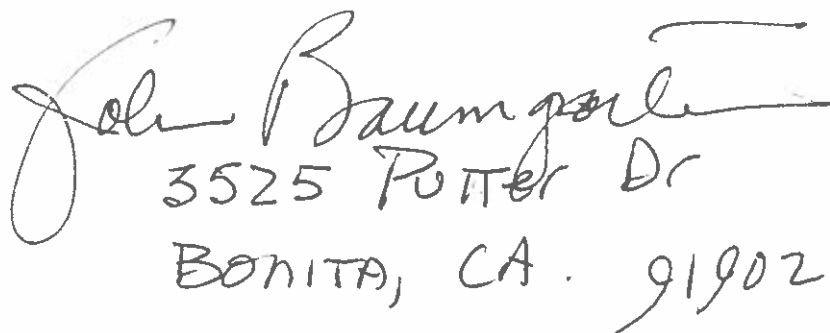 John Baumgartner
3525 Putter Dr
BONITA, CA. 91902